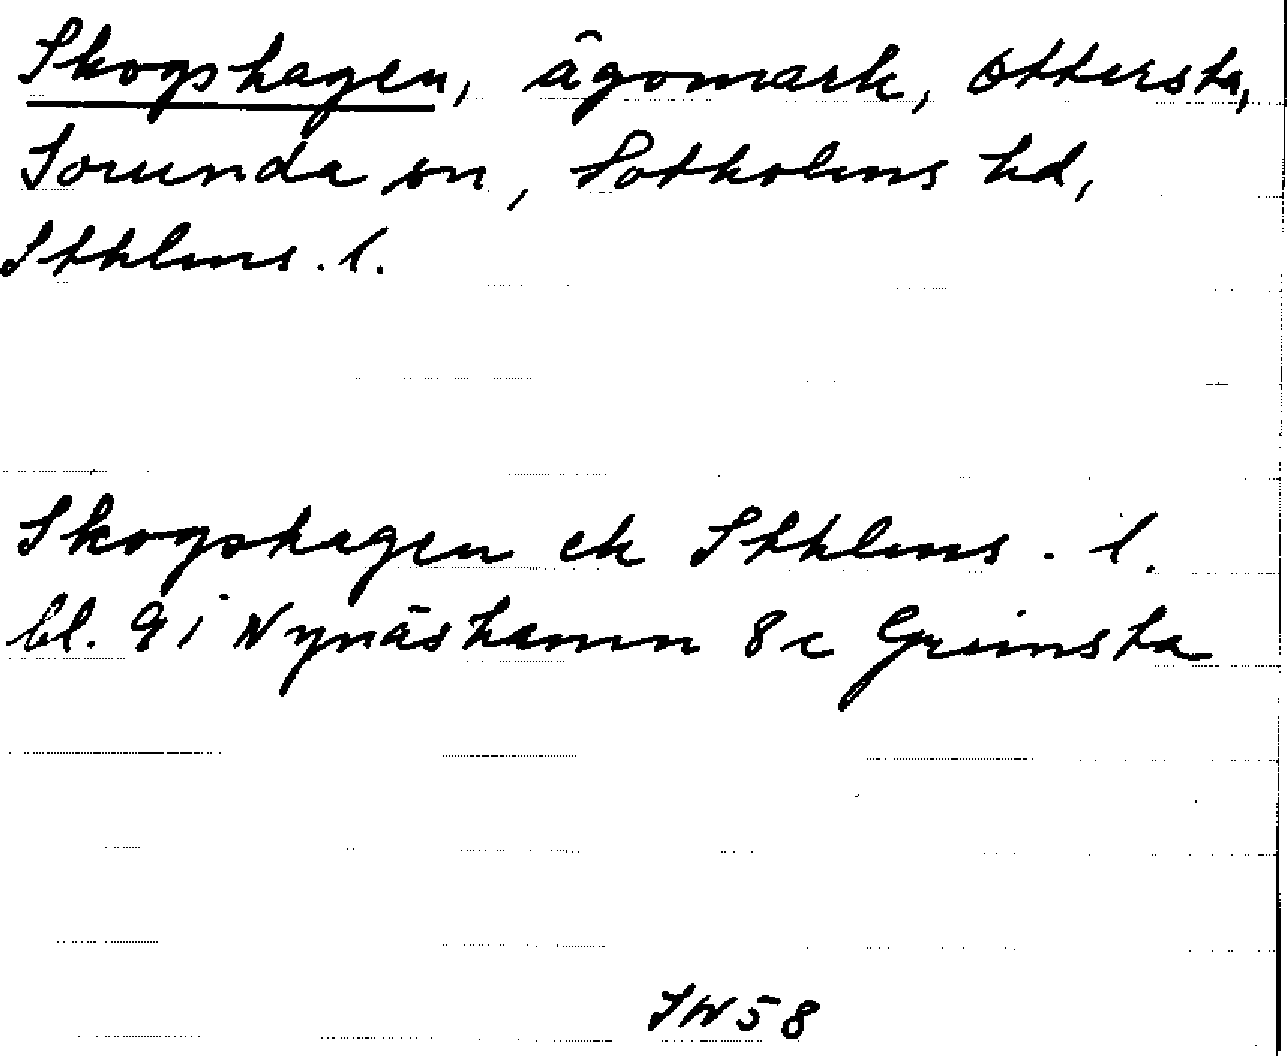 Skogshagen, ägomark, Ottersta,
Sorunda sn, Sotholms hd,
Sthlms. l.
Skogshagen ek Sthlms. l.
bl. 9 i Nynäshamn 8 c Grimsta
SW58